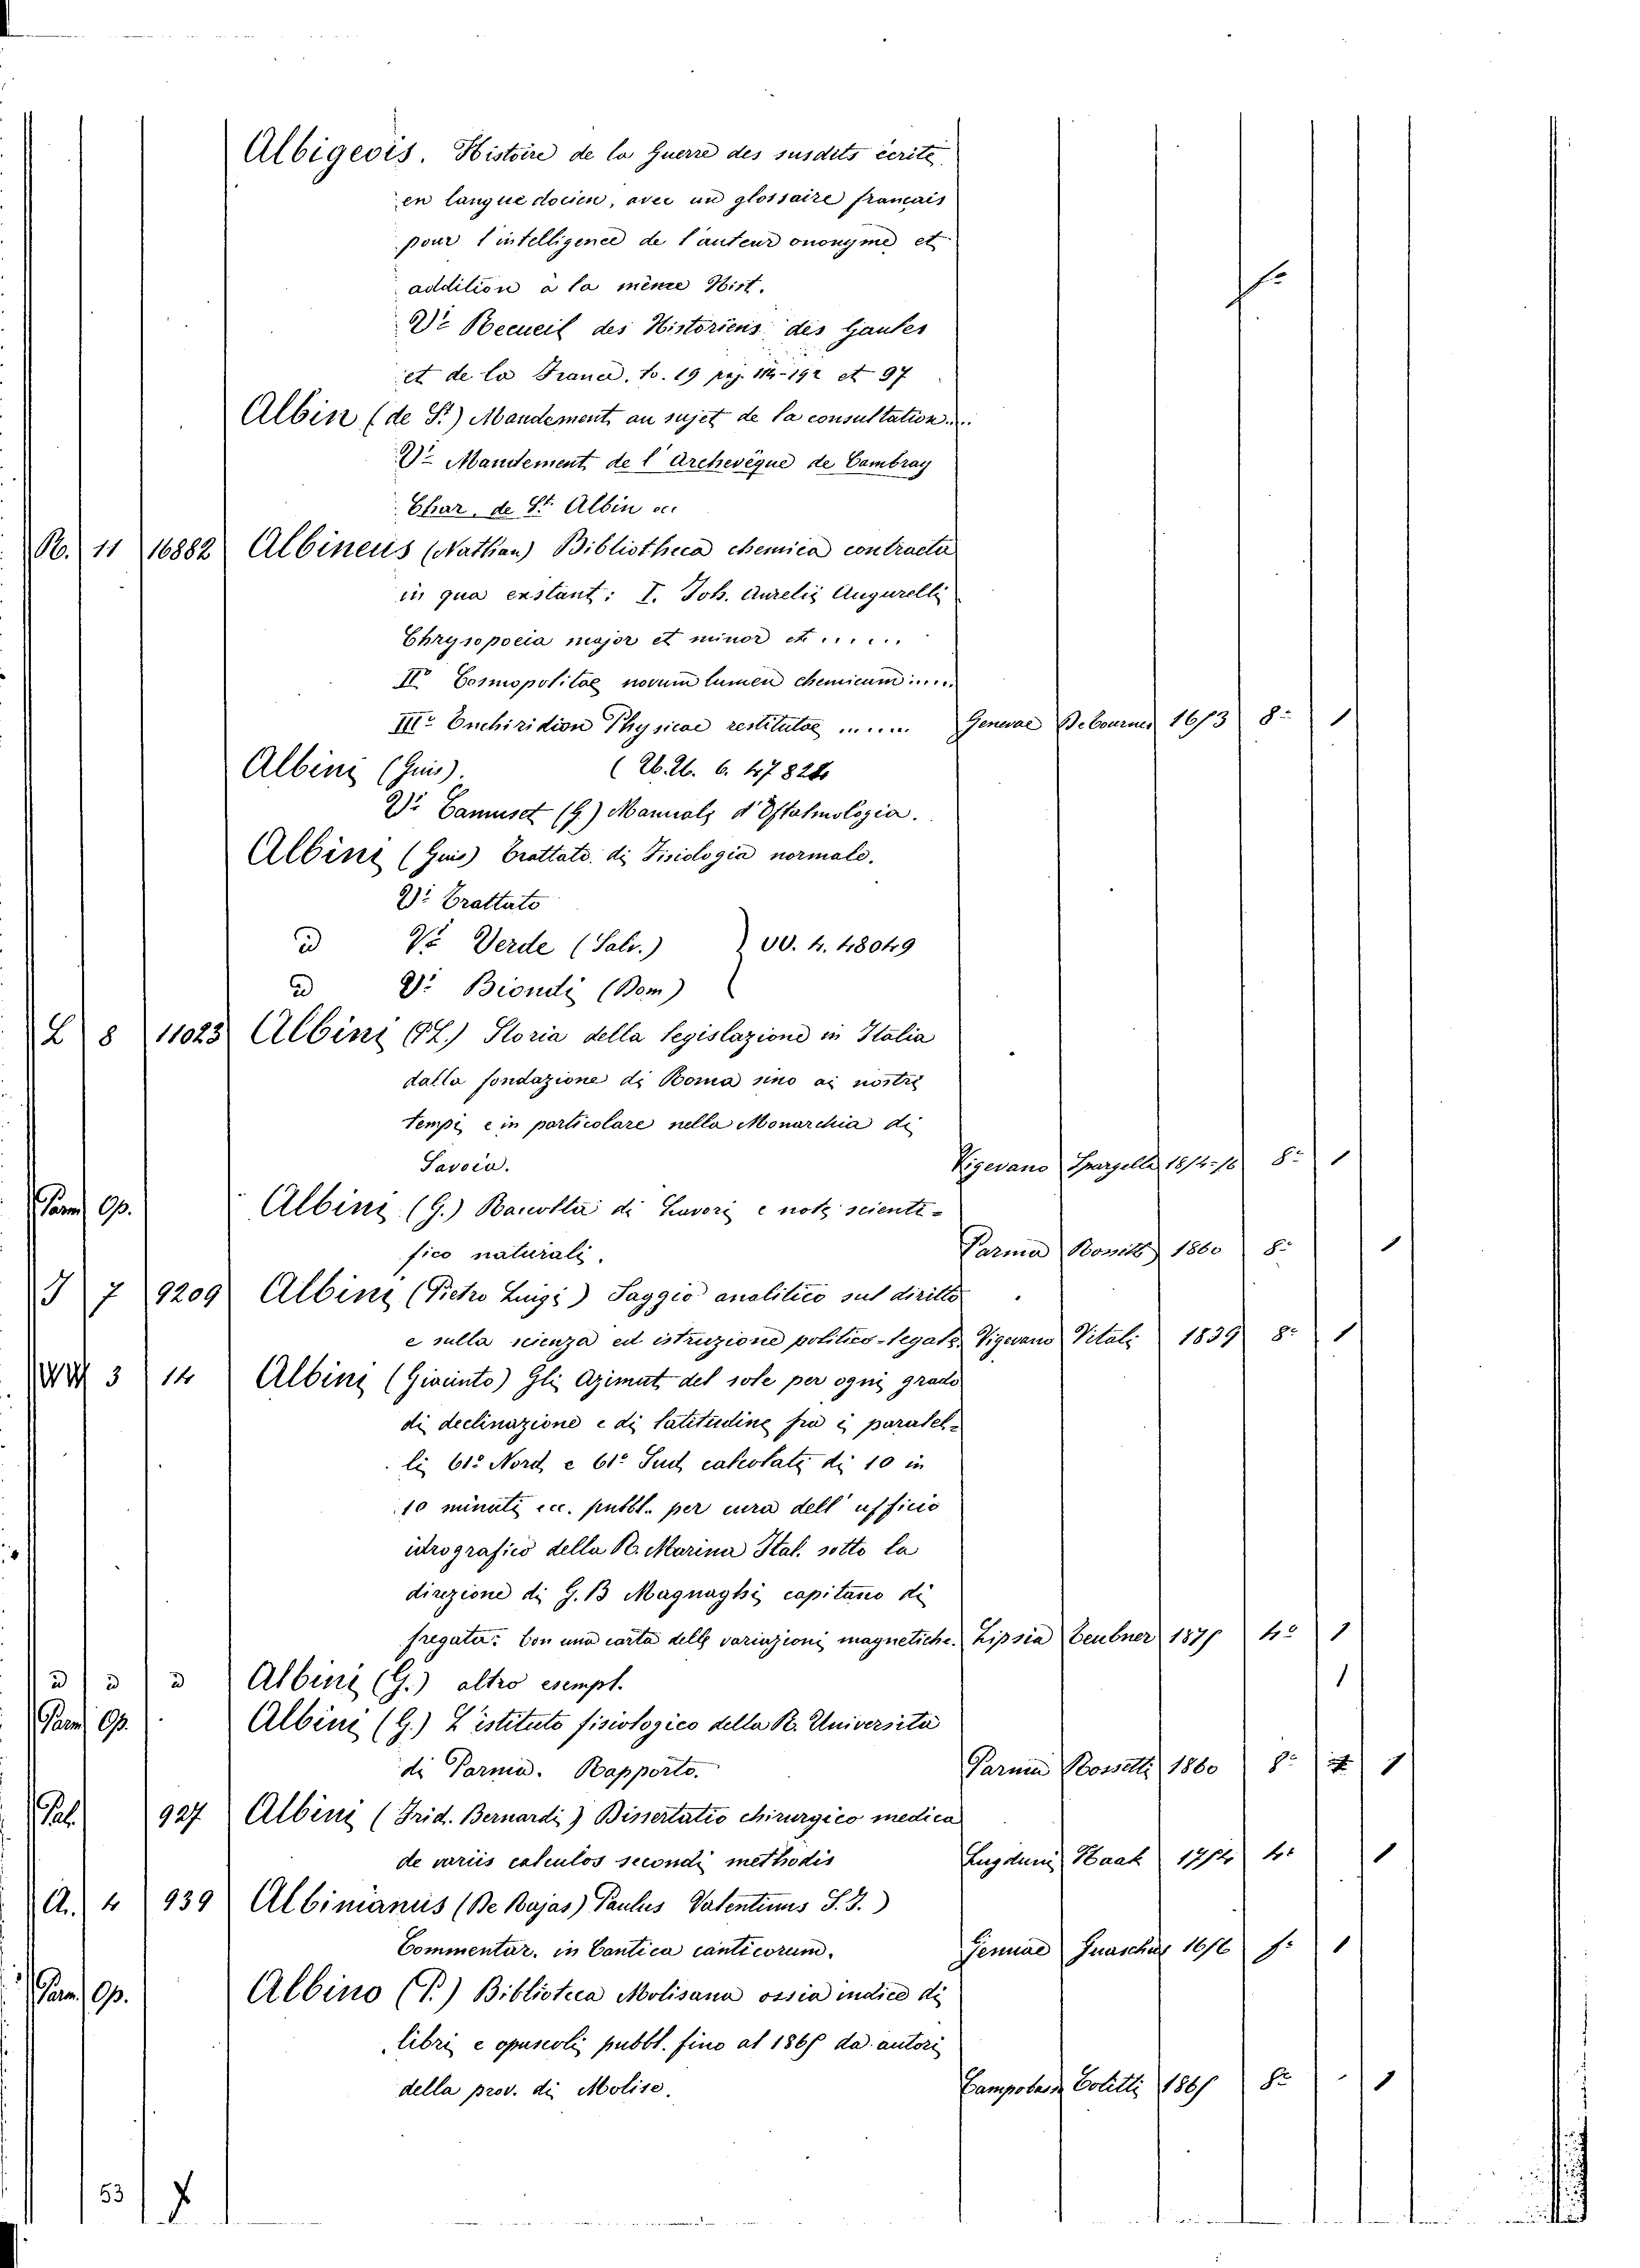 Albigeois. Histoire de la Guerre des susdits écrite
en langue docien, avec un glossaire francais
pour l'intelligence de l'auteur ononyme et
addition à la même Hist.
Vº Recueil des Historiens des Gaules
et de la France. to. 19 pag. 114-192 et 97
Albin (de St.) Mandement au sujet de la consultation...
Vº Mandement de l'Archevèque de Cambray
Char. de St. Albin ec.
R. 11 16882 Albineus (Nathan) Bibliotheca chemica contracta
in qua exstant: I. Joh. Aurelii Augurelli
Chrysopoeia major et minor et ......
IIº Cosmopolitae novum lumen chemicum .....
IIIº Enchiridion Physicae restitutae ...... Genevae De Tournes 1673 8º 1
Albini (Gius). ( 6. 47824
Vº Camuset (G.) Manuale d'Oftalmologia.
Albini (Gius) Trattato di Fisiologia normale.
Vº Trattato
id Vº Verde (Salv.) 4. 48049
id Vº Biondi (Dom)
L 8 11023 Albini (P.L.) Storia della legislazione in Italia
dalla fondazione di Roma sino ai nostri
tempi e in particolare nella Monarchia di
Savoia. Vigevano 8º 1
Parm Op. Albini (G.) Raccolta di Lavori e note scienti-
fico naturali. Parma 1860 8º 1
I 7 9209 Albini (Pietro Luigi) Saggio analitico sul diritto
e sulla scienza ed istruzione politico-legale. Vigevano Vitali 1839 8º 1
3 14 Albini (Giacinto) Gli Azimut del sole per ogni grado
di declinazione e di latitudine fra i paralel-
li 61º Nord e 61º Sud calcolati di 10 in
10 minuti ec. pubbl. per cura dell'ufficio
idrografico della R. Marina Ital. sotto la
direzione di G. B Magnaghi capitano di
fregata: Con una carta delle variazioni magnetiche. Lipsia Teubner 187 4º 1
id id id Albini (G.) altro esempl. 1
Parm Op. Albini (G.) L'istituto fisiologico della R. Università
di Parma. Rapporto. Parma Rossetti 1860 8º 1
Pal. 927 Albini (Frid. Bernardi) Dissertatio chirurgico medica
de variis calculos secondi methodis Lugduni Haak 1754 4º 1
A. 4 939 Albinianus (De Rajas) Paulus Valentinus S. J.)
Commentar. in Cantica canticorum. Genuae Guaschus f. 1
Parm. Op. Albino (P.) Biblioteca Molisana ossia indice di
libri e opuscoli pubbl. fino al 186 da autori
della prov. di Molise. Campobasso Colitti 186 8º 1
53